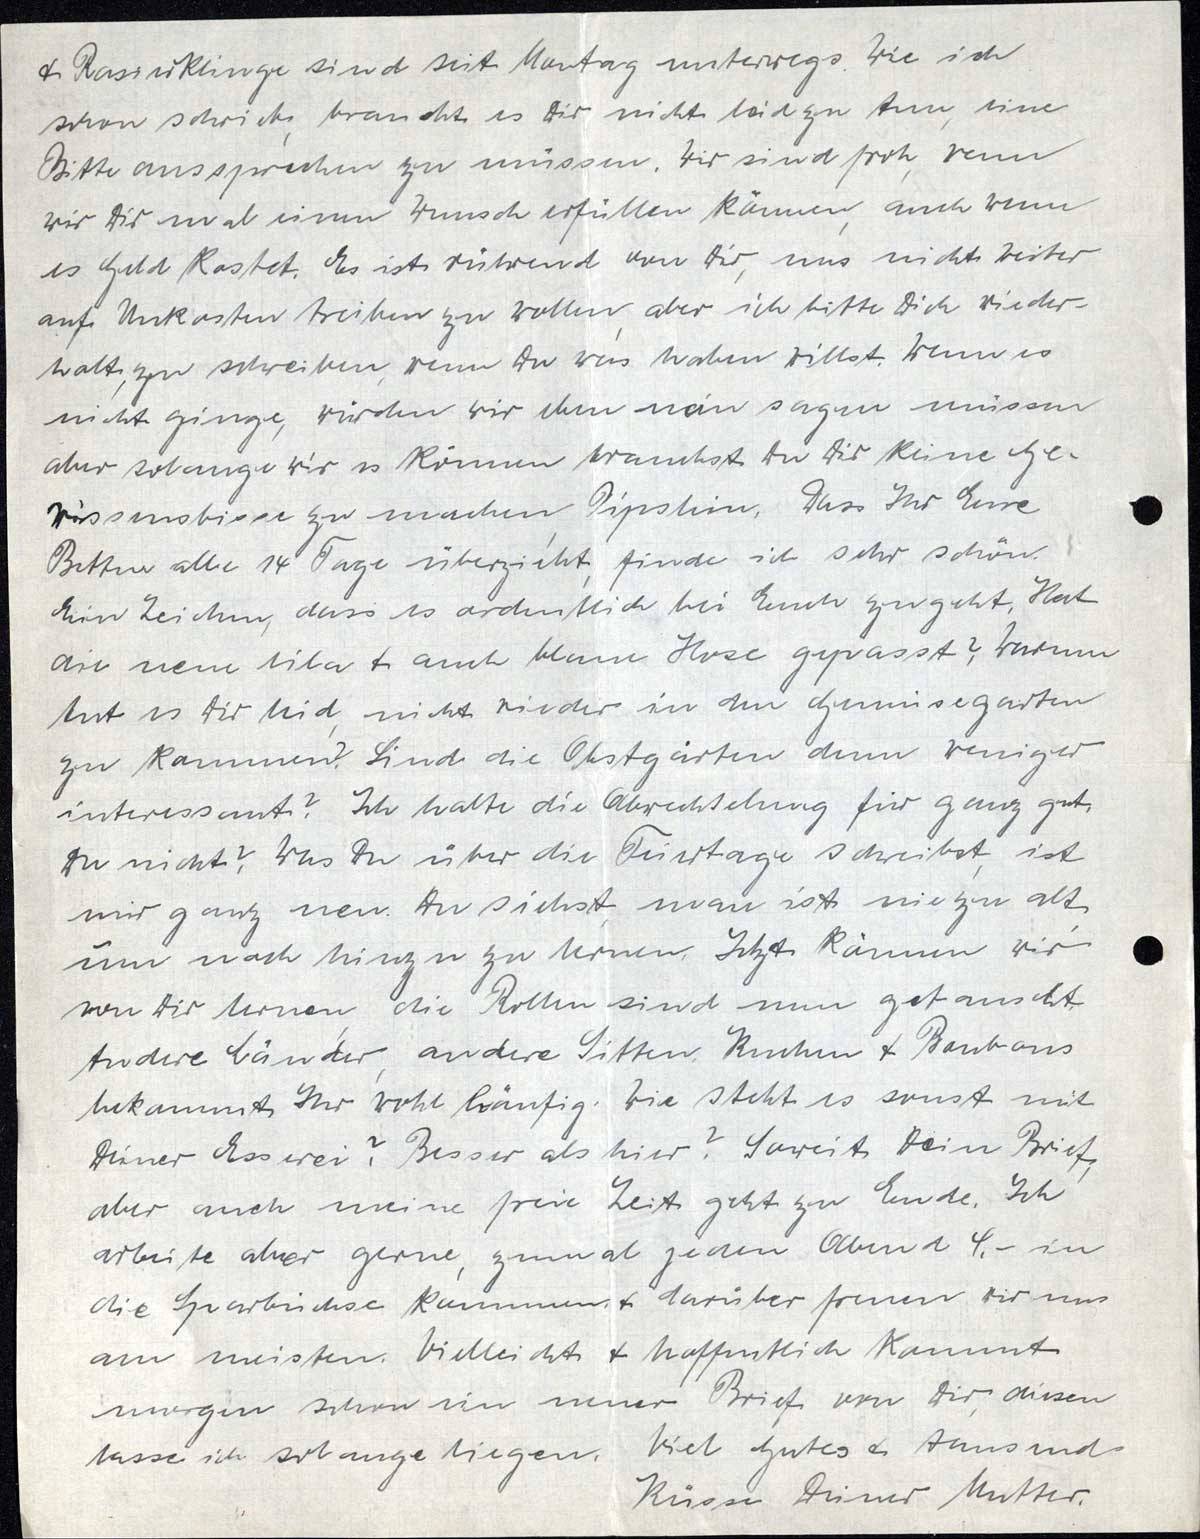 & Rasierklinge sind seit Montag unterwegs. Wie ich
schon schrieb, braucht es Dir nicht leid zu tun, eine
Bitte aussprechen zu müssen. Wir sind froh, wenn
wir Dir mal einen Wunsch erfüllen können, auch wenn
es Geld kostet. Es ist rührend von Dir, uns nicht weiter
auf Unkosten treiben zu wollen, aber ich bitte Dich wieder-
holt, zu schreiben, wenn Du was haben willst. Wenn es
nicht ginge, würden wir eben nein sagen müssen
aber solange wir es können brauchst Du Dir keine Ge-
wissensbisse zu machen, Pipslein. Dass Ihr Eure
Betten alle 14 Tage überzieht, finde ich sehr schön.
Ein Zeichen, dass es ordentlich bei Euch zugeht. Hat
die neue lila & auch blaue Hose gepasst? Warum
tut es Dir leid, nicht wieder in den Gemüsegarten
zu kommen? Sind die Obstgärten denn weniger
interessant? Ich halte die Abwechslung für ganz gut,
Du nicht? Was Du über die Feiertage schreibst, ist
mir ganz neu. Du siehst, man ist nie zu alt,
um noch hinzu zu lernen. Jetzt können wir
von Dir lernen, die Rollen sind nun getauscht.
Andere Länder, andere Sitten. Kuchen & Bonbons
bekommt Ihr wohl häufig. Wie steht es sonst mit
Deiner Esserei? Besser als hier? Soweit Dein Brief,
aber auch meine freie Zeit geht zu Ende. Ich
arbeite aber gerne, zumal jeden Abend 4.- in
die Sparbüchse kommen & darüber freuen wir uns
am meisten. Vielleicht & hoffentlich kommt
morgen schon ein neuer Brief von Dir, diesen
lasse ich solange liegen. Viel Gutes & tausend
Küsse Deiner Mutter.